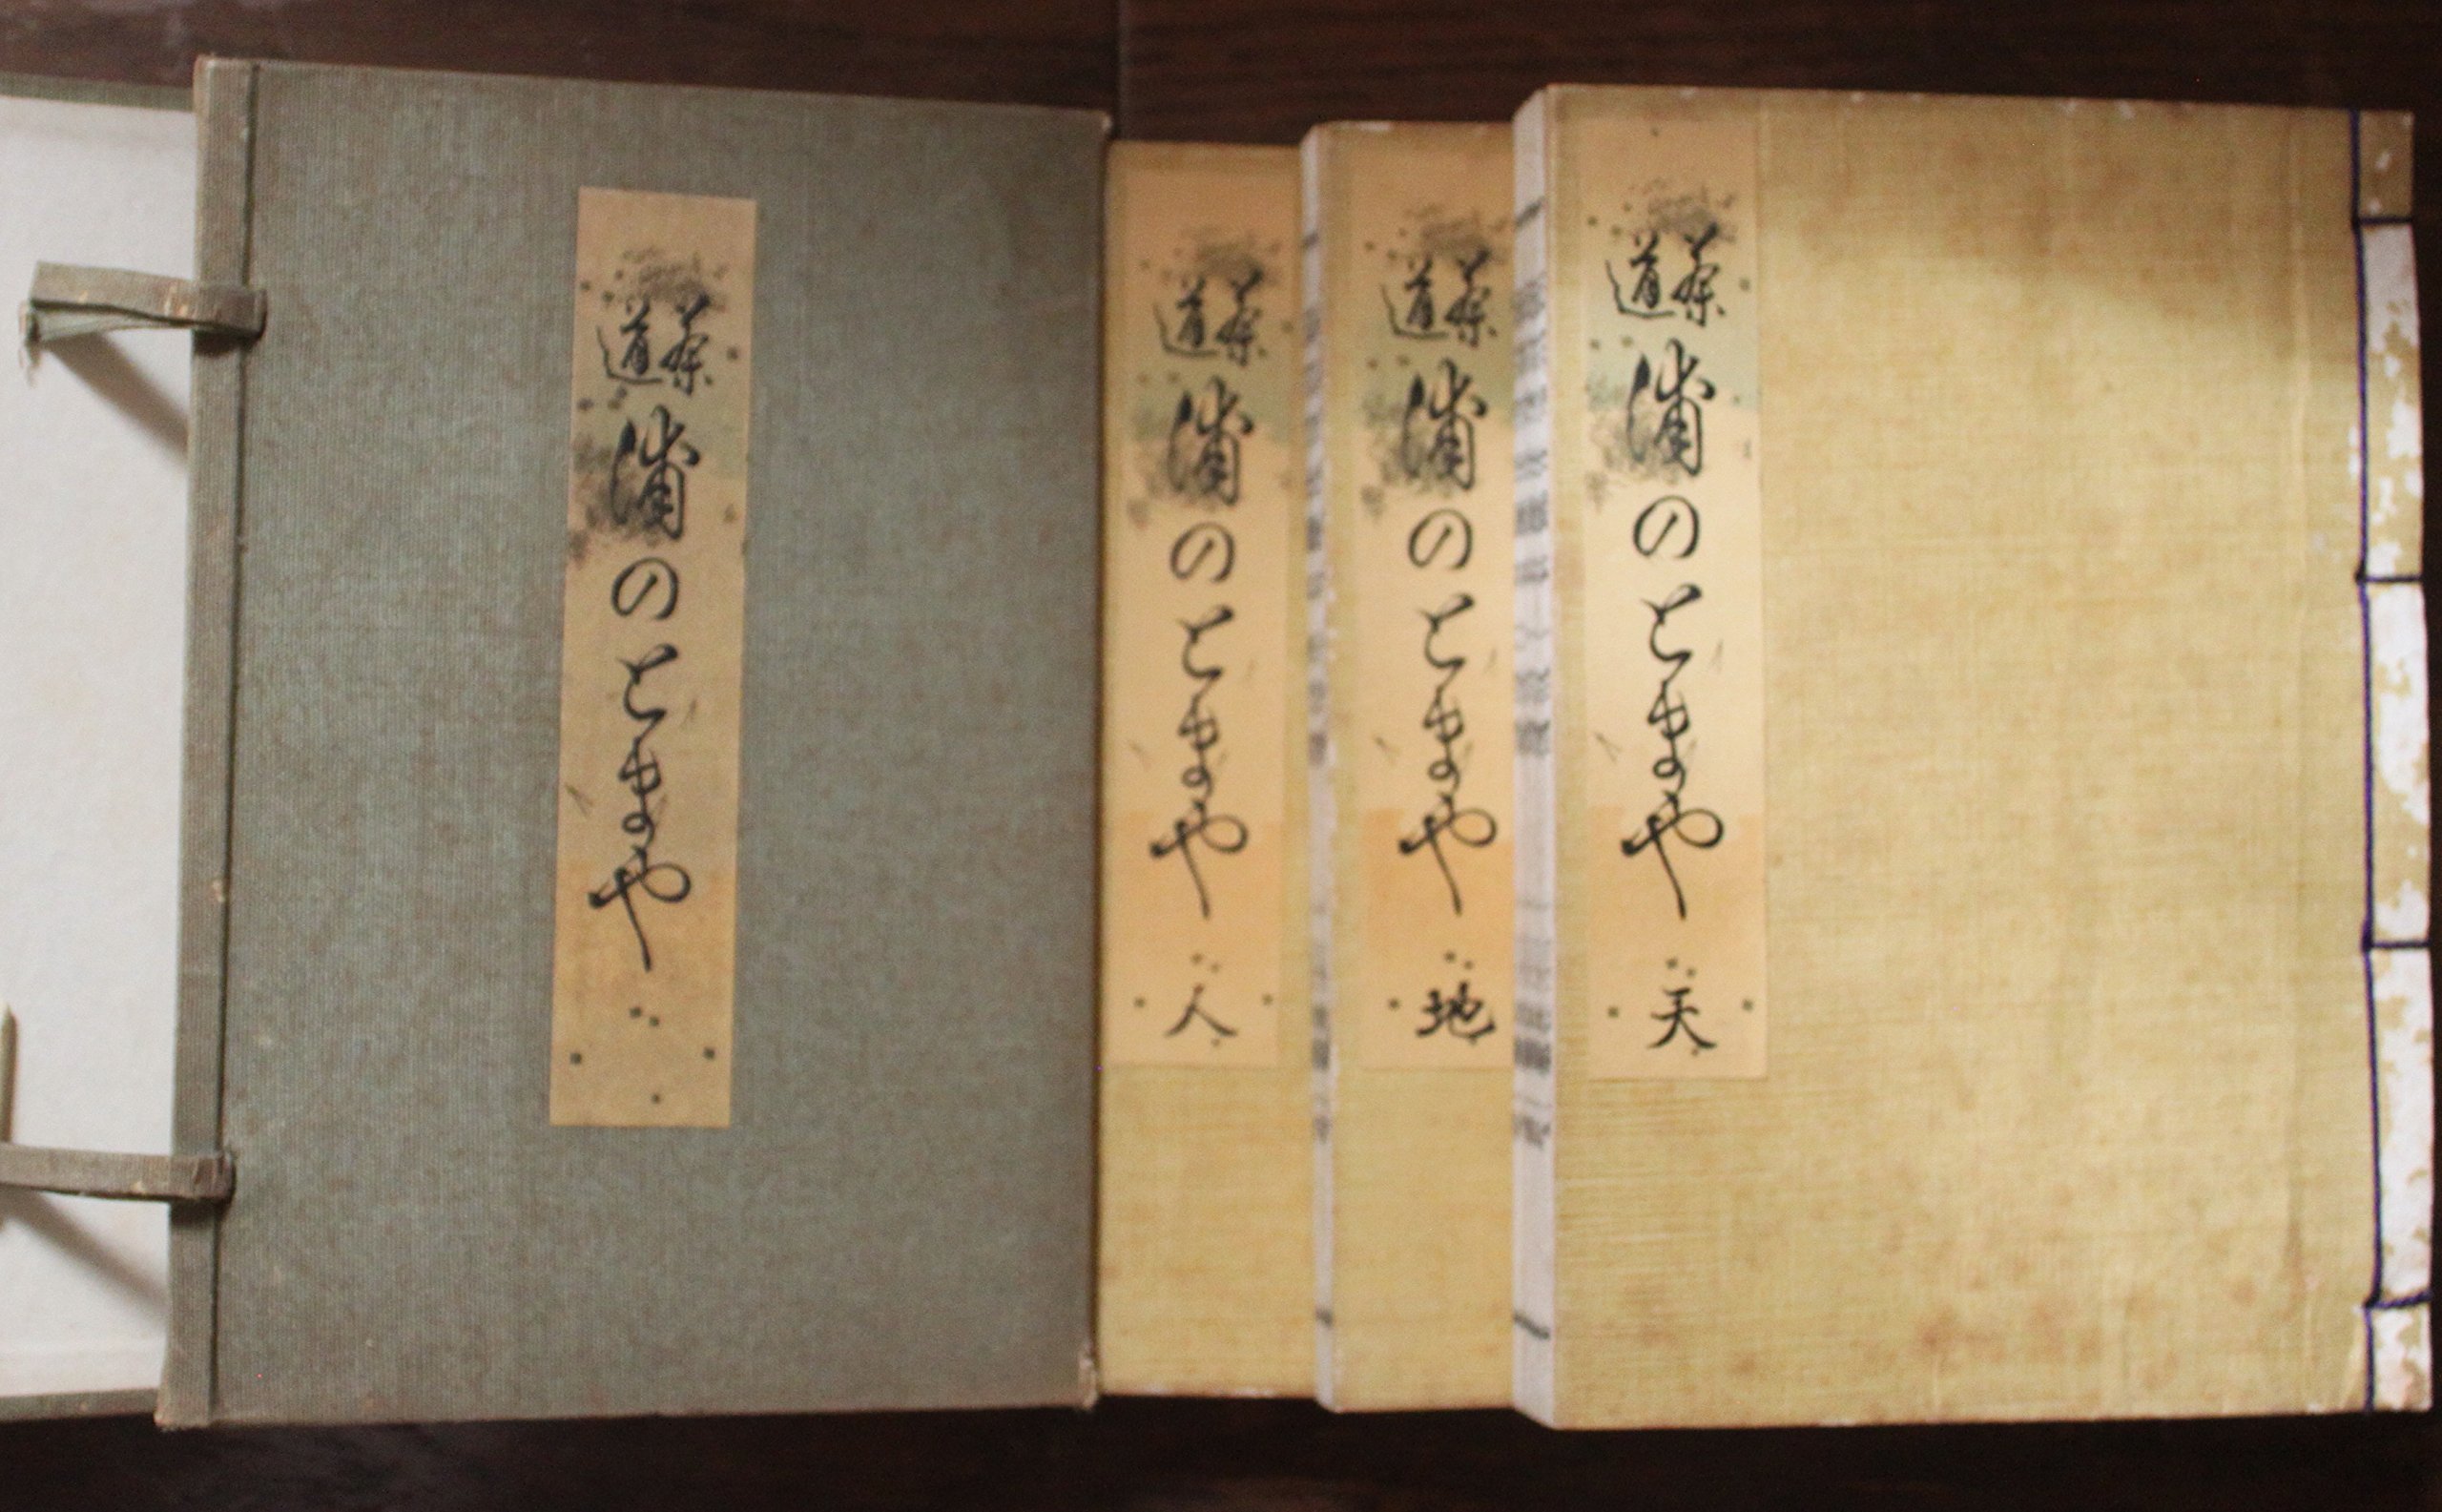 茶道 浦のとまや
茶道 浦のとまや 人
茶道 浦のとまや 地
茶道 浦のとまや 天